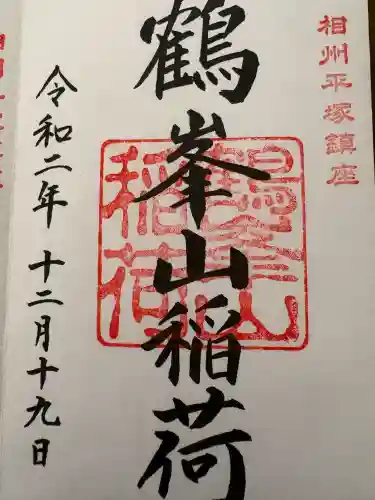 相州平塚鎮座
鶴峯山稲荷
鶴峯山
稲荷
令和二年 十二月十九日